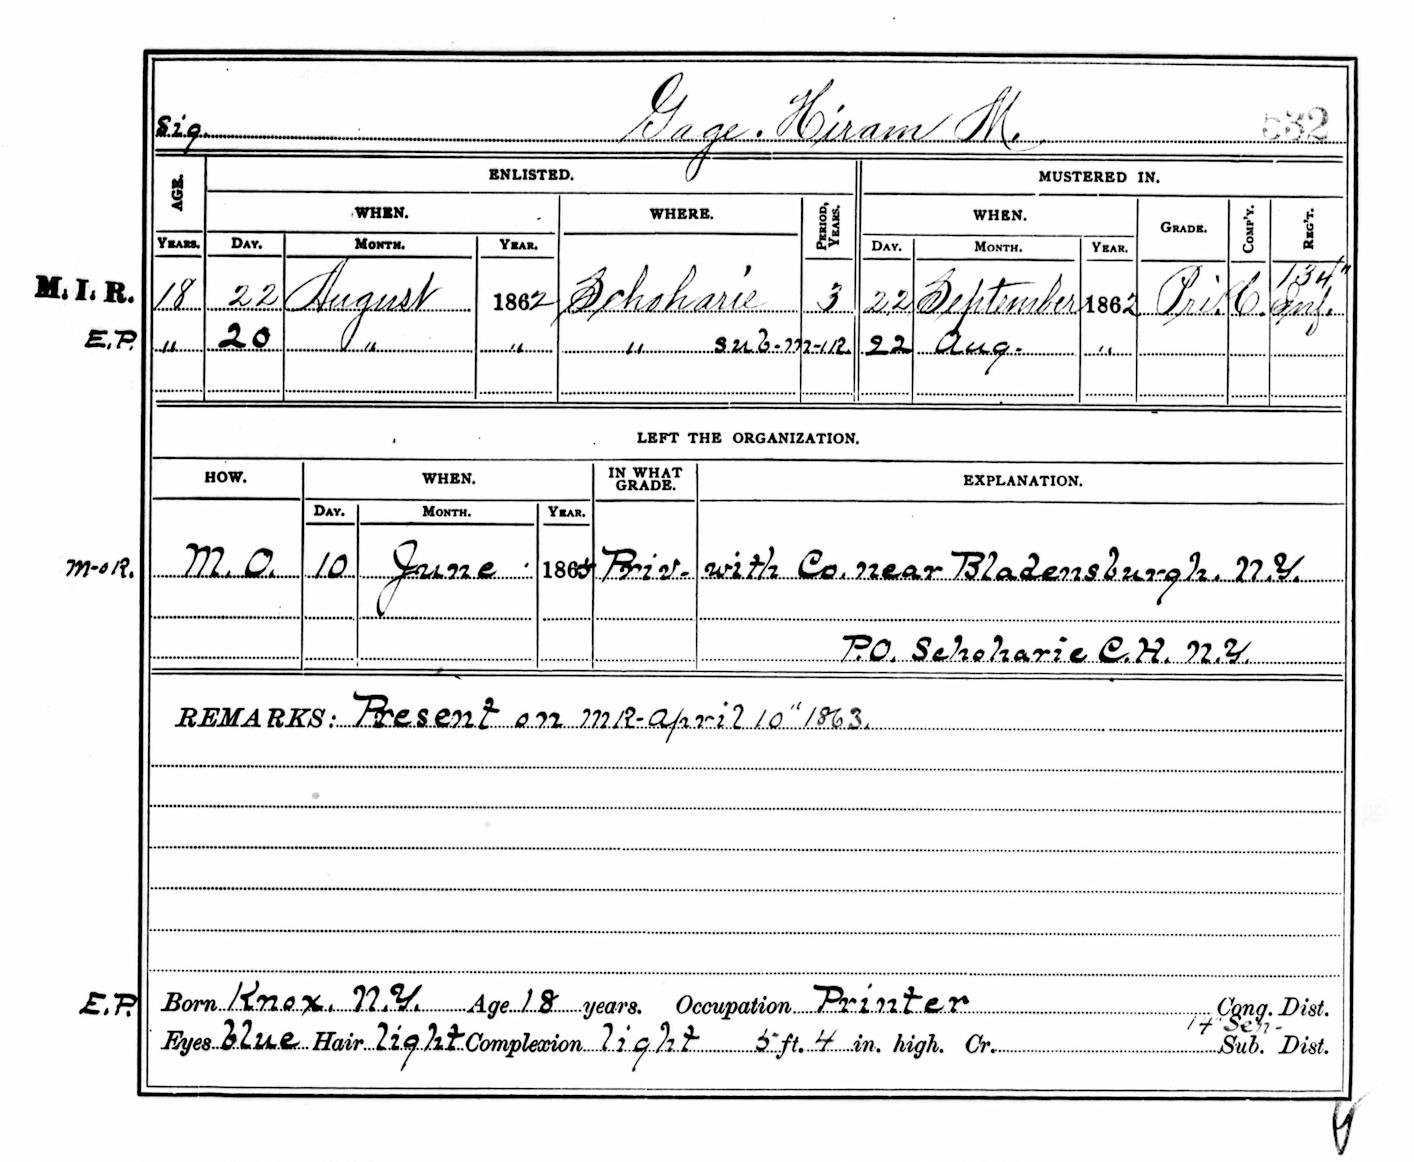 Sig. Gage. Hiram M. 532
AGE. ENLISTED. MUSTERED IN.
WHEN. WHERE. PERIOD, YEARS. WHEN. GRADE. COMP'Y. REG'T.
YEARS. DAY. MONTH. YEAR. DAY. MONTH. YEAR.
M. I. R. 18 22 August 1862 Schoharie 3 22 September 1862 Pri. C. 134" Inf.
E.P. " 20 " " " sub-M-I R. 22 Aug. "
LEFT THE ORGANIZATION.
HOW. WHEN. IN WHAT GRADE. EXPLANATION.
DAY. MONTH. YEAR.
M-o R. M. O. 10 June 1865 Priv- with Co. near Bladensburgh. N.Y.
P.O. Schoharie C.H. N.Y.
REMARKS: Present on MR-April 10" 1863.
E.P. Born Knox. N.Y. Age 18 years. Occupation Printer Cong. Dist.
14" Sen-
Eyes blue Hair light Complexion light 5 ft. 4 in. high. Cr. Sub. Dist.